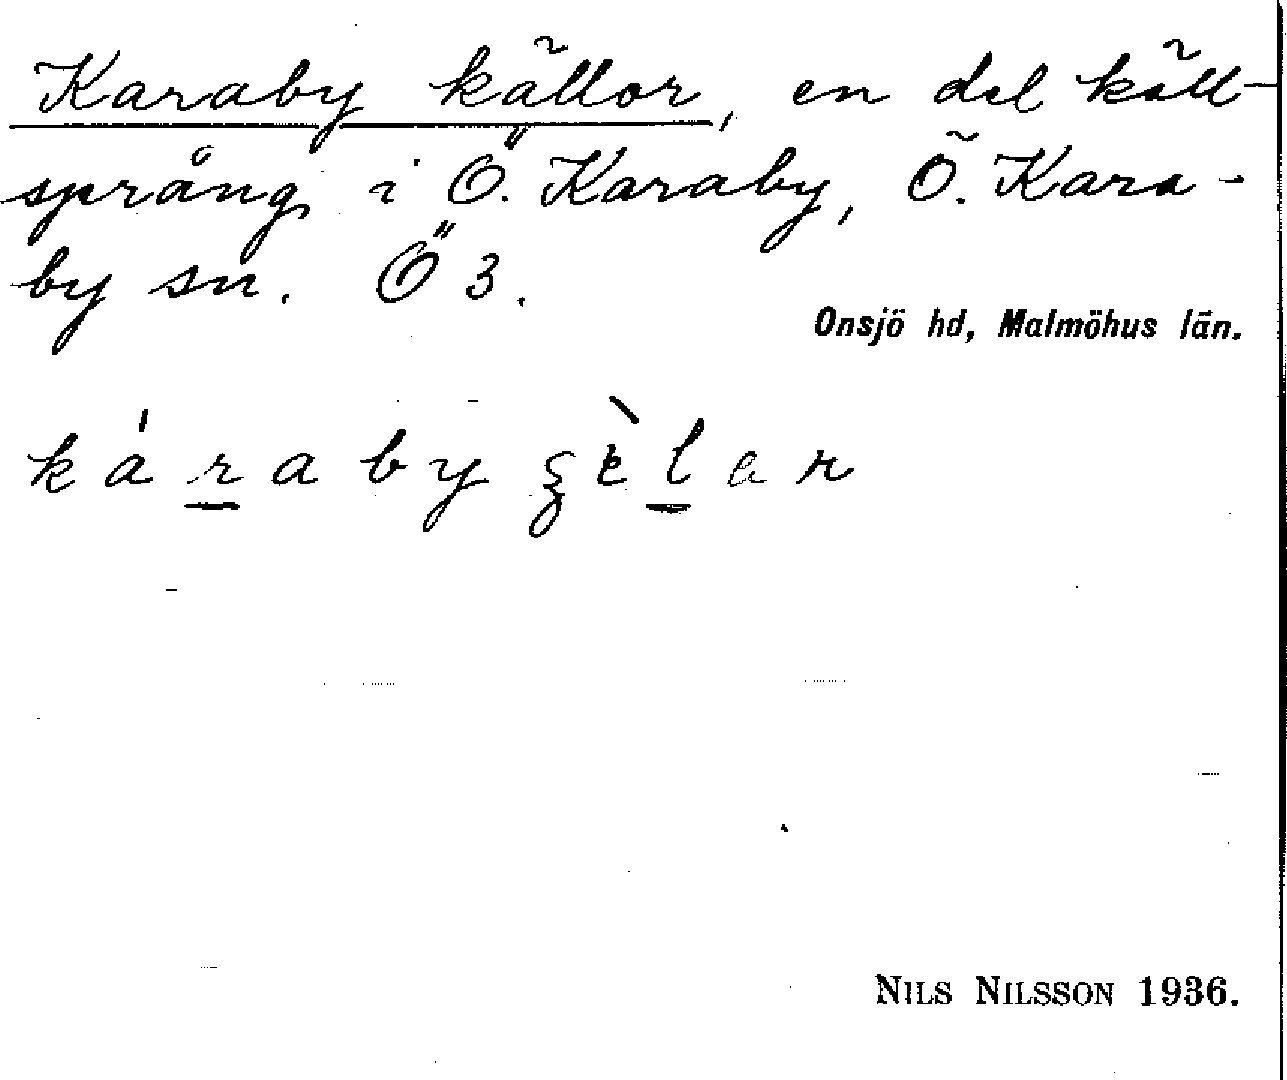 Karaby källor, en del käll-
språng i Ö. Karaby, Ö. Kara-
by sn. Ö 3.
Onsjö hd, Malmöhus län.
káraby
NILS NILSSON 1936.